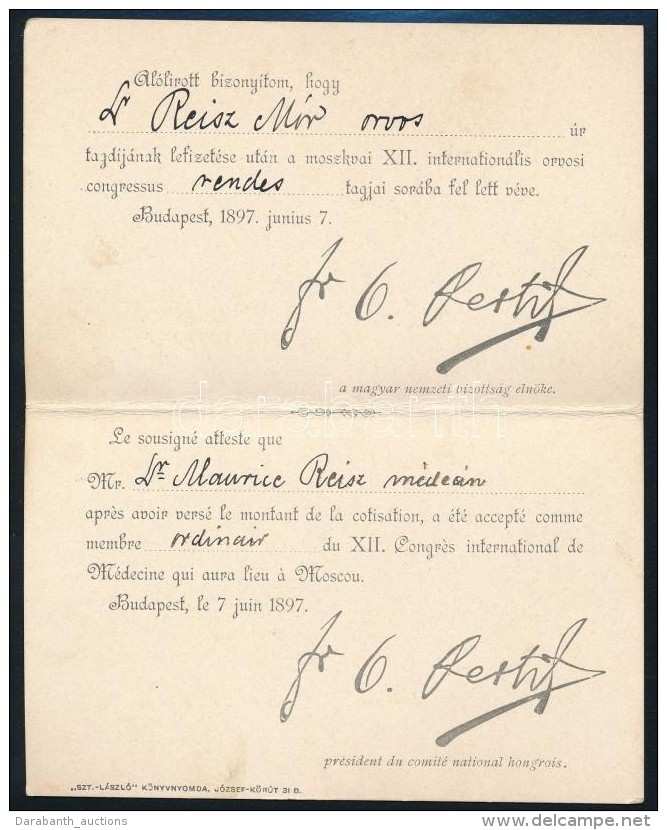 Alólirott bizonyitom, hogy
Dr Reisz Mór orvos úr
tagdijának lefizetése után a moszkvai XII. internationális orvosi
congressus rendes tagjai sorába fel lett véve.
Budapest, 1897. junius 7.
a magyar nemzeti bizottság elnöke.
darabanth
Le sousigné atteste que
Mr. Dr Maurice Reisz médecin
après avoir versé le montant de la cotisation, a été accepté comme
membre ordinair du XII. Congrès international de
Médecine qui aura lieu à Moscou.
Budapest, le 7 juin 1897.
président du comité national hongrois.
„SZT.-LÁSZLÓ" KÖNYVNYOMDA. JÓZSEF-KÖRÚT 31 B.
Darabanth_auctions
delcampe.net